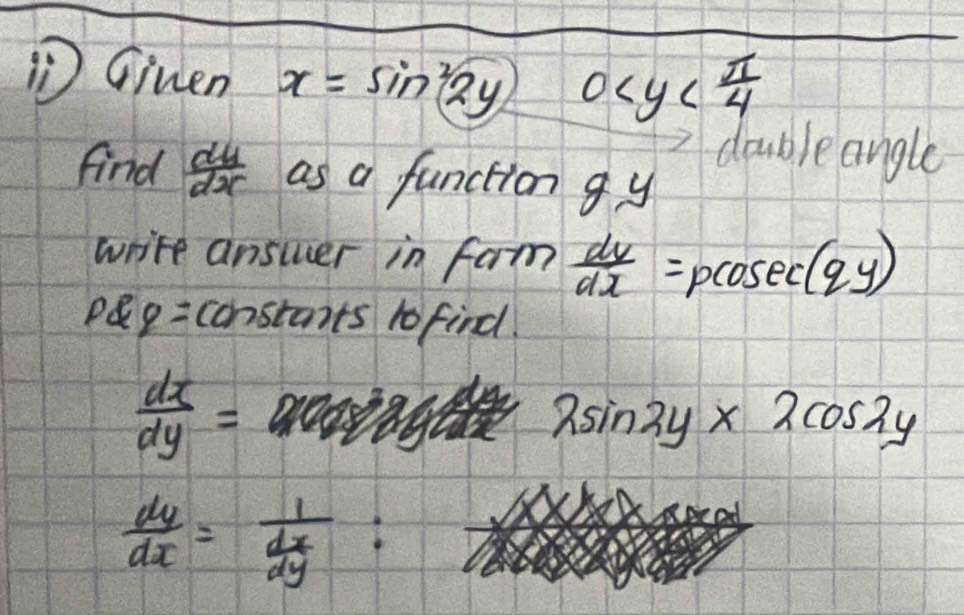 ii) Given x = sin²2y 0<y<π/4
double angle
find dy/dx as a function of y
write answer in form dy/dx = pcosec(qy)
p&q = constants to find.
dx/dy = 2sin2y × 2cos2y
dy/dx = 1/(dx/dy) :